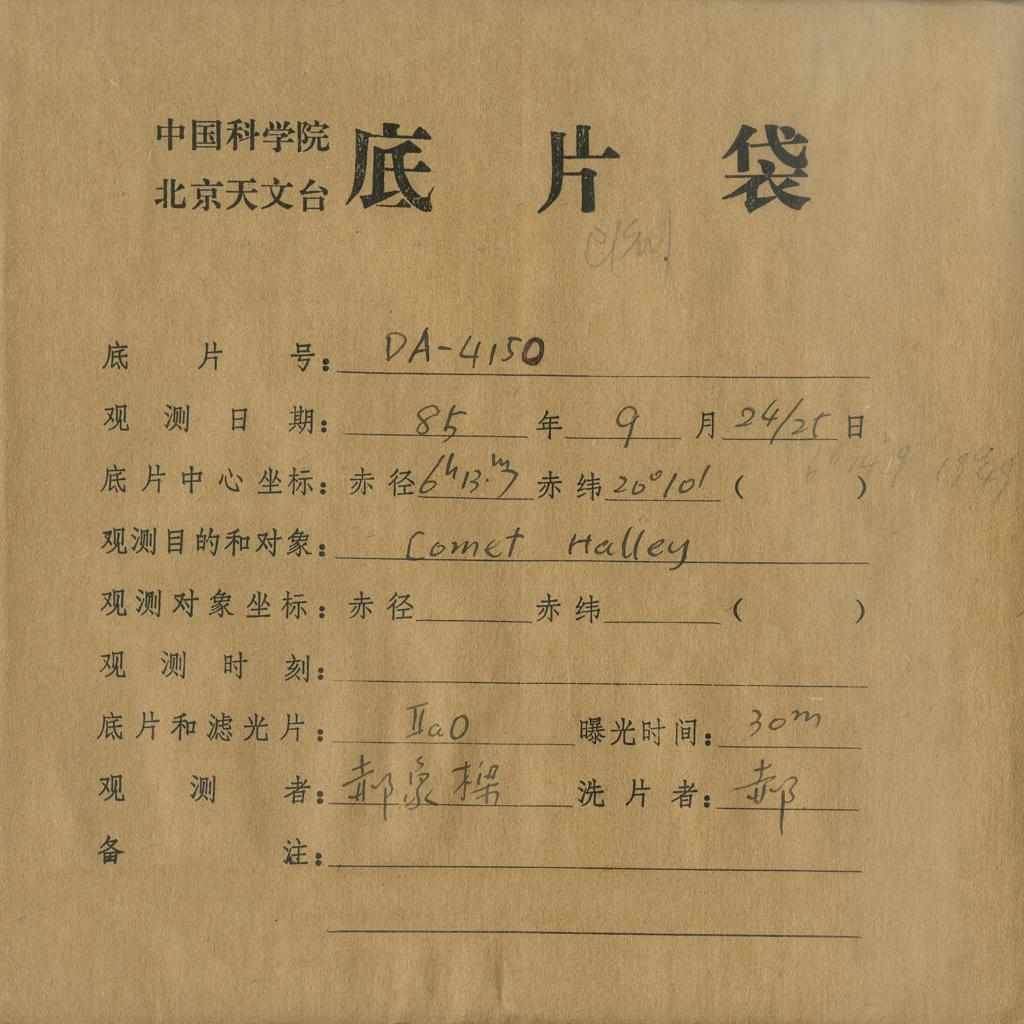 中国科学院
北京天文台 底片袋
底片号: DA-4150
观测日期: 85年9月24/25日
底片中心坐标: 赤径6h13.m7 赤纬20°10′ ( )
观测目的和对象: Comet Halley
观测对象坐标: 赤径 赤纬 ( )
观测时刻:
底片和滤光片: IIaO 曝光时间: 30m
观测者: 郝象樑 洗片者: 郝
备注: